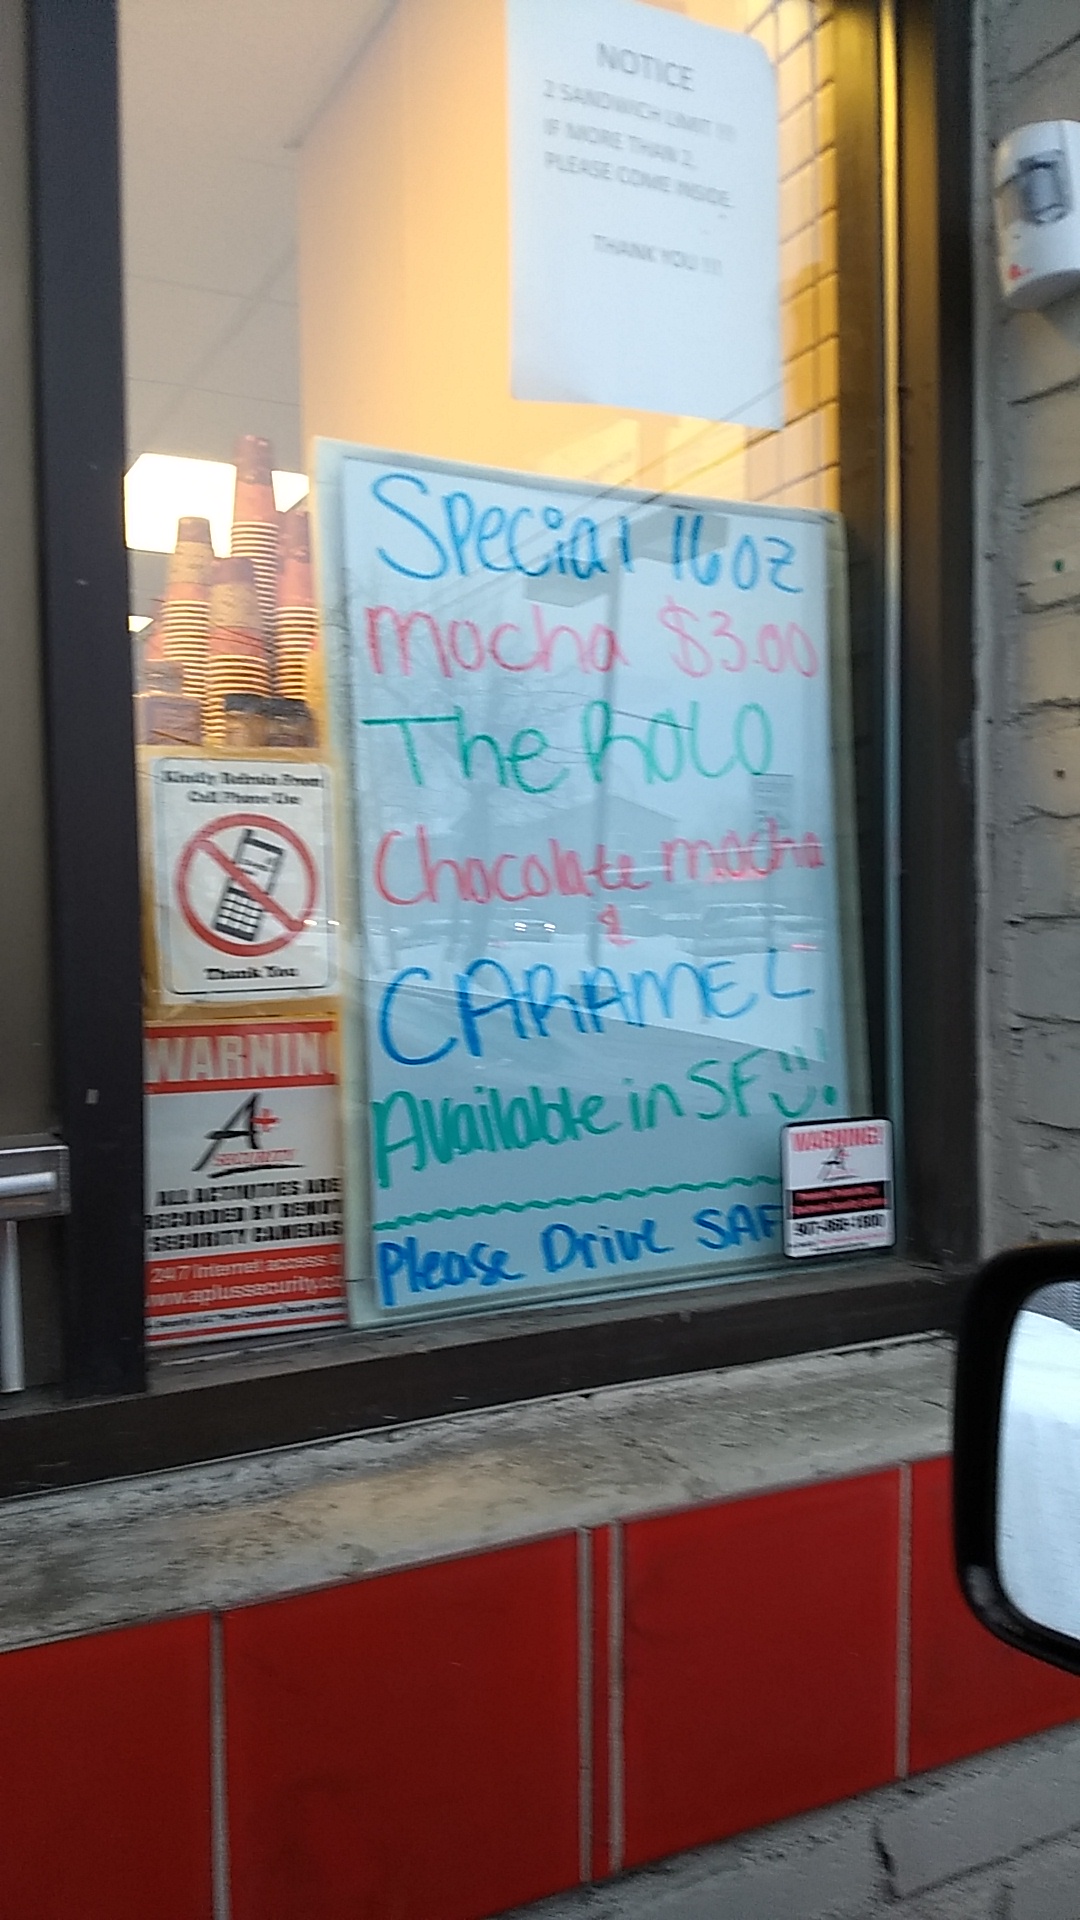 NOTICE
2 SANDWICH LIMIT !!!
IF MORE THAN 2,
PLEASE COME INSIDE.
THANK YOU !!!
Special 16oz
mocha $3.00
The ROLO
Chocolate mocha
&
CARAMEL
Available in SF!!!
Please Drive SAF
Kindly Refrain From
Cell Phone Use
Thank You
WARNIN
A+
SECURITY
ALL ACTIVITIES ARE
RECORDED BY REMOT
SECURITY CAMERAS
24/7 Internet access
www.aplussecurity.co
WARNING!
A+